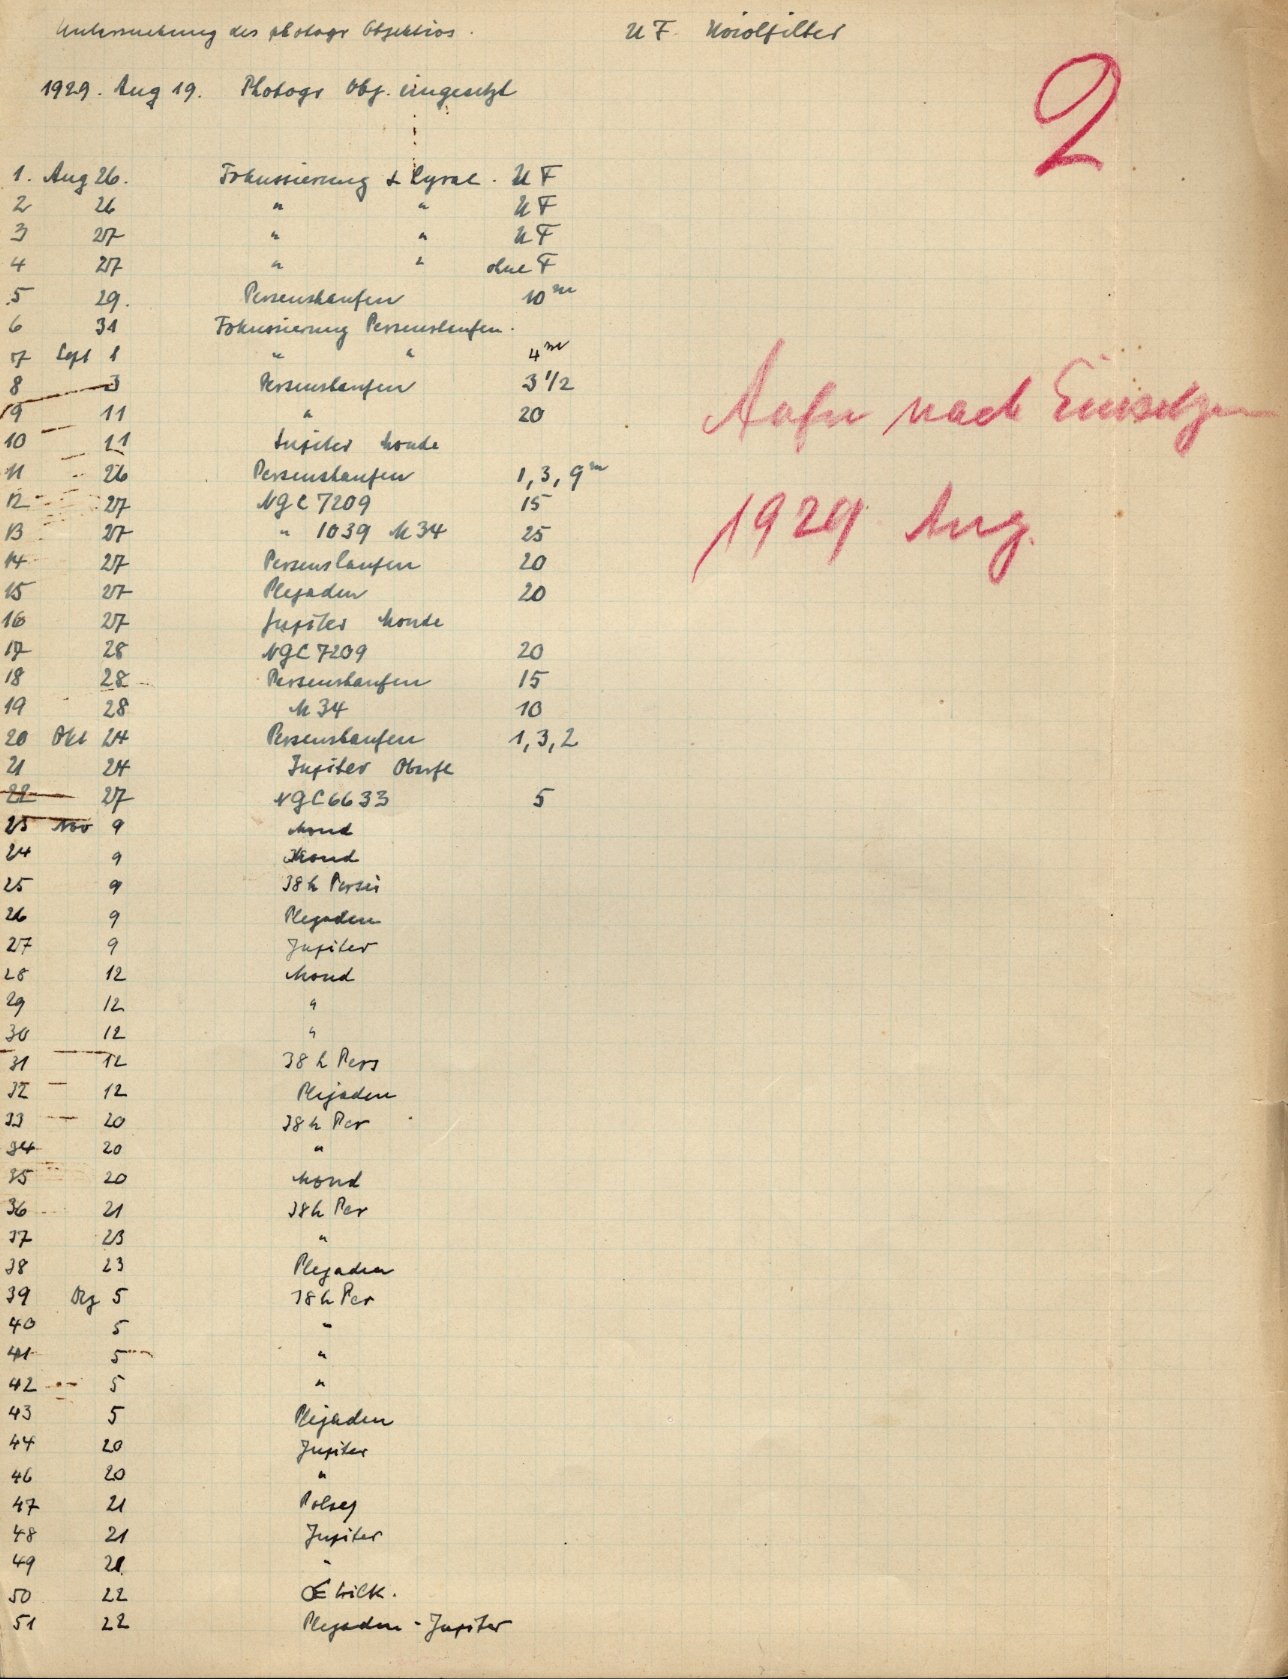 Untersuchung des photogr Objektivs. UF. Uviolfilter
2
1929. Aug 19. Photogr Obj. eingesetzt
1. Aug 26. Fokussierung α Lyrae. UF
2 26 " " UF
3 27 " " UF
4 27 " " ohne F
5 29. Perseushaufen 10 m
6 31 Fokussierung Perseushaufen.
7 Sept 1 " " 4 m
8 3 Perseushaufen 3 1/2
9 11 " 20
10 11 Jupiter Monde
11 26 Perseushaufen 1, 3, 9 m
12 27 NGC 7209 15
13 27 " 1039 M34 25
14 27 Perseushaufen 20
15 27 Plejaden 20
16 27 Jupiter Monde
17 28 NGC 7209 20
18 28 Perseushaufen 15
19 28 M 34 10
20 Okt 24 Perseushaufen 1, 3, 2
21 24 Jupiter Oberfl
22 27 NGC 6633 5
23 Nov 9 Mond
24 9 Mond
25 9 38 h Persei
26 9 Plejaden
27 9 Jupiter
28 12 Mond
29 12 "
30 12 "
31 12 38 h Pers
32 12 Plejaden
33 20 38 h Per
34 20 "
35 20 Mond
36 21 38 h Per
37 23 "
38 23 Plejaden
39 Dez 5 38 h Per
40 5 "
41 5 "
42 5 "
43 5 Plejaden
44 20 Jupiter
46 20 "
47 21 Polseq
48 21 Jupiter
49 21 "
50 22 Wilk.
51 22 Plejaden - Jupiter
Aufn nach Einsetzen
1929 Aug.